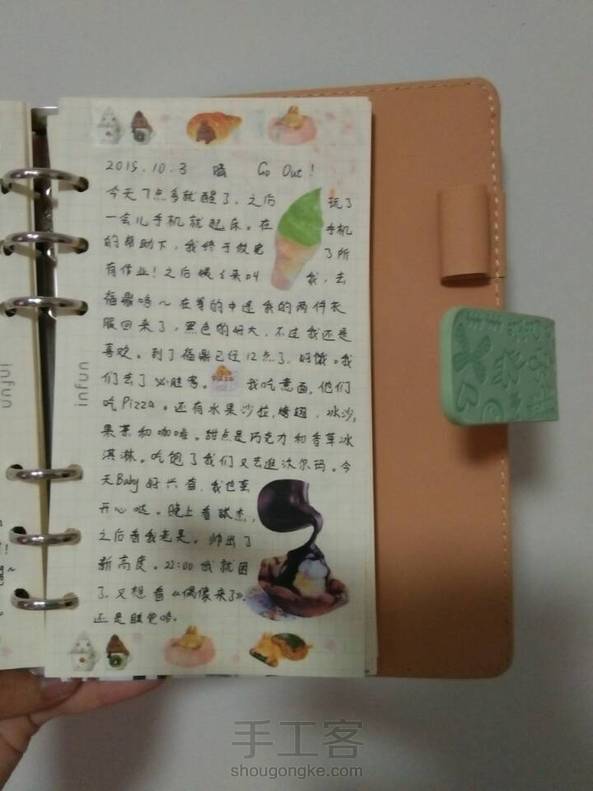 2015.10.3 晴 Go Out!
今天7点多就醒了,之后 玩了
一会儿手机就起床。在 手机
的帮助下,我终于放电 了所
有作业!之后 来叫 我,去
福鼎 ~ 在等的中途我的两件衣
服回来了,黑色的好大,不过我还是
喜欢。到了福鼎已经12点了,好饿。我
们去了必胜客。 PIZZA 我吃意面,他们
吃Pizza。还有水果沙拉,烤翅,冰沙,
果茶和咖啡。甜点是巧克力和香草冰
淇淋。吃饱了我们又去逛沃尔玛。今
天Baby好兴奋,我也蛮
开心哒。晚上看
之后看我老是。帅出了
新高度。22:00我就困
了,又想看《偶像来了》,
还是睡觉
infun
infun
手工客
shougongke.com